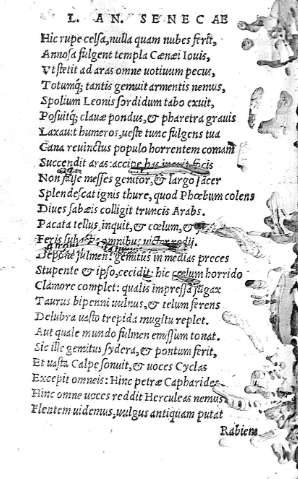 L. AN. SENECAE
Hic rupe celsa, nulla quam nubes ferit,
Annosa fulgent templa Cænæi Iouis,
Vt stetit ad aras omne uotiuum pecus,
Totumq; tantis gemuit armentis nemus,
Spolium Leonis sordidum tabo exuit,
Posuitq; clauæ pondus, & pharetra grauis
Laxauit humeros, ueste tunc fulgens tua
Cana reuinctus populo horrentem comam
Succendit aras: accipe has focis
Non false messes genitor, & largo sacer
Splendescat ignis thure, quod Phœbum colens
Diues sabæis colligit truncis Arabs.
Pacata tellus, inquit, & cœlum, &
omnibus uictor redij.
Depone fulmen: gemitus in medias preces
Stupente & ipso, cecidit: hic cœlum horrido
Clamore complet: qualis impressa fugax
Taurus bipenni uulnus, & telum ferens
Delubra uasto trepida mugitu replet.
Aut quale mundo fulmen emissum tonat.
Sic ille gemitus sydera, & pontum ferit,
Et uasta Calpe sonuit, & uoces Cyclas
Excepit omneis: Hinc petræ Capharides
Hinc omne uoces reddit Herculeas nemus
Flentem uidemus, uulgus antiquam putat
Rabiem